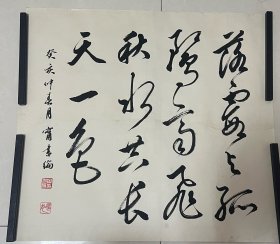 落霞与孤
鹜齐飞
秋水共长
天一色
癸亥仲春月